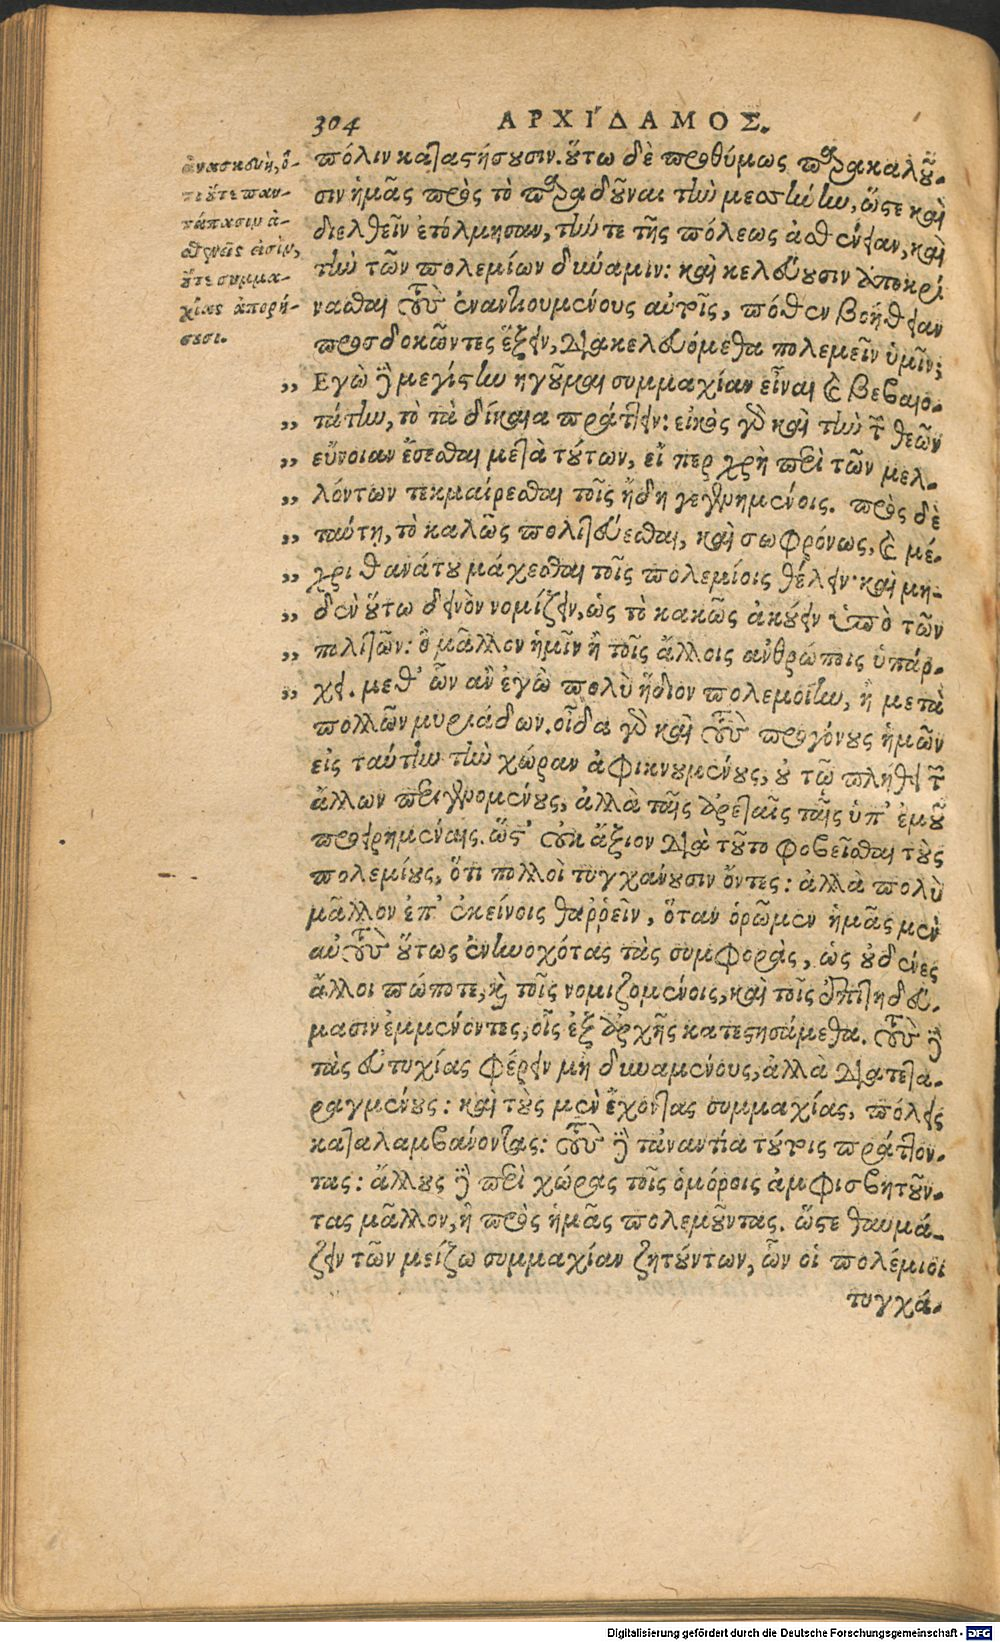 304 ΑΡΧΙΔΑΜΟΣ.
ἀνασκευὴ, ὅ-
τι οὔτε παν-
τάπασιν ἀ-
σθενεῖς εἰσὶν,
οὔτε συμμα-
χίας ἀπορή-
σουσι.
πόλιν καταστήσουσιν. οὕτω δὲ προθύμως παρακαλοῦ-
σιν ἡμᾶς πρὸς τὸ παραδοῦναι τὴν μεσσήνην, ὥστε καὶ
διελθεῖν ἐτόλμησαν, τήν τε τῆς πόλεως ἀσθένειαν, καὶ
τὴν τῶν πολεμίων δύναμιν: καὶ κελεύουσιν ἀποκρί
νασθαι τοὺς ἐναντιουμένους αὐτοῖς, πόθεν βοήθειαν
προσδοκῶντες ἕξειν, διακελευόμεθα πολεμεῖν ὑμῖν;
„ Εγὼ δὲ μεγίστην ἡγοῦμαι συμμαχίαν εἶναι καὶ βεβαιο-
„ τάτην, τὸ τὰ δίκαια πράττειν: εἰκὸς γὰρ καὶ τὴν τῶν θεῶν
„ εὔνοιαν ἔσεσθαι μετὰ τούτων, εἴ περ χρὴ περὶ τῶν μελ-
„ λόντων τεκμαίρεσθαι τοῖς ἤδη γεγενημένοις. πρὸς δὲ
„ ταύτῃ, τὸ καλῶς πολιτεύεσθαι, καὶ σωφρόνως, καὶ μέ-
„ χρι θανάτου μάχεσθαι τοῖς πολεμίοις θέλειν· καὶ μη-
„ δὲν οὕτω δεινὸν νομίζειν, ὡς τὸ κακῶς ἀκούειν ὑπὸ τῶν
„ πολιτῶν: ὃ μᾶλλον ἡμῖν ἢ τοῖς ἄλλοις ἀνθρώποις ὑπάρ-
„ χει. μεθ' ὧν ἂν ἐγὼ πολὺ ἥδιον πολεμοίην, ἢ μετὰ
πολλῶν μυριάδων. οἶδα γὰρ καὶ τοὺς προγόνους ἡμῶν
εἰς ταύτην τὴν χώραν ἀφικνουμένους, οὐ τῷ πλήθει τῶν
ἄλλων περιγενομένους, ἀλλὰ ταῖς ἀρεταῖς ταῖς ὑπ' ἐμοῦ
προειρημέναις. ὥστ' οὐκ ἄξιον διὰ τοῦτο φοβεῖσθαι τοὺς
πολεμίους, ὅτι πολλοὶ τυγχάνουσιν ὄντες: ἀλλὰ πολὺ
μᾶλλον ἐπ' ἐκείνοις θαῤῥεῖν, ὅταν ὁρῶμεν ἡμᾶς μὲν
αὐτοὺς οὕτως ἐνηνοχότας τὰς συμφορὰς, ὡς οὐδένες
ἄλλοι πώποτε, καὶ τοῖς νομιζομένοις, καὶ τοῖς ἐπιτηδεύ-
μασιν ἐμμένοντες, οἷς ἐξ ἀρχῆς κατεστησάμεθα. τοὺς δὲ
τὰς εὐτυχίας φέρειν μὴ δυναμένους, ἀλλὰ διατετα-
ραγμένους: καὶ τοὺς μὲν ἔχοντας συμμαχίας, πόλεις
καταλαμβάνοντας: τοὺς δὲ τἀναντία τούτοις πράττον-
τας: ἄλλους δὲ περὶ χώρας τοῖς ὁμόροις ἀμφισβητοῦν-
τας μᾶλλον, ἢ πρὸς ἡμᾶς πολεμοῦντας. ὥστε θαυμά-
ζειν τῶν μείζω συμμαχίαν ζητούντων, ὧν οἱ πολέμιοι
τυγχά-
Digitalisierung gefördert durch die Deutsche Forschungsgemeinschaft - DFG